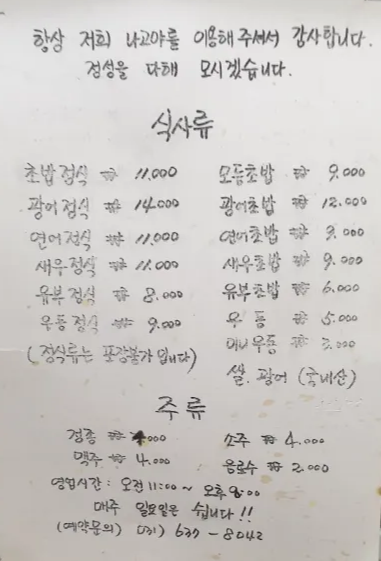 항상 저희 나고야를 이용해 주셔서 감사합니다.
정성을 다해 모시겠습니다.
식사류
초밥정식 ₩ 11.000
광어정식 ₩ 14.000
연어정식 ₩ 11.000
새우정식 ₩ 11.000
유부정식 ₩ 8.000
우동정식 ₩ 9.000
(정식류는 포장불가 입니다)
모듬초밥 ₩ 9.000
광어초밥 ₩ 12.000
연어초밥 ₩ 9.000
새우초밥 ₩ 9.000
유부초밥 ₩ 6.000
우동 ₩ 5.000
미니우동 ₩ 3.000
쌀. 광어 (국내산)
주류
정종 ₩
맥주 ₩ 4.000
소주 ₩ 4.000
음료수 ₩ 2.000
영업시간 : 오전 11:00 ~ 오후 8:00
매주 일요일은 쉽니다!!
(예약문의) 031) 637 - 8042